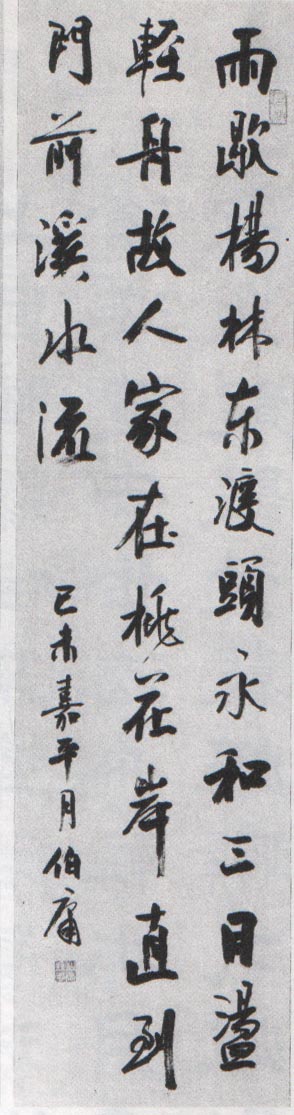 雨歇楊林東渡頭永和三日盪
輕舟故人家在桃花岸直到
門前溪水流
己未嘉平月伯庸